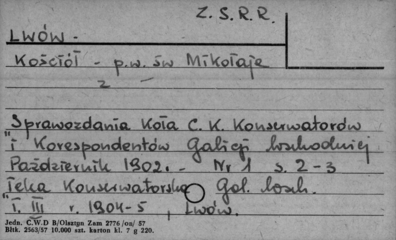 Z. S. R. R.
LWÓW -
KOŚCIÓŁ - p.w. św Mikołaje
z -
Sprawozdania Koła C. K. Konserwatorów
" i Korespondentów Galicji Wschodniej
Październik 1902. - Nr 1 s. 2-3
Teka Konserwatorska Gal. Wsch.
" T. III r. 1904-5, Lwów.
Jedn. C.W.D B/Olsztyn Zam 2776/on/57
Bltk. 2563/57 10.000 szt. karton kl. 7 g 220.